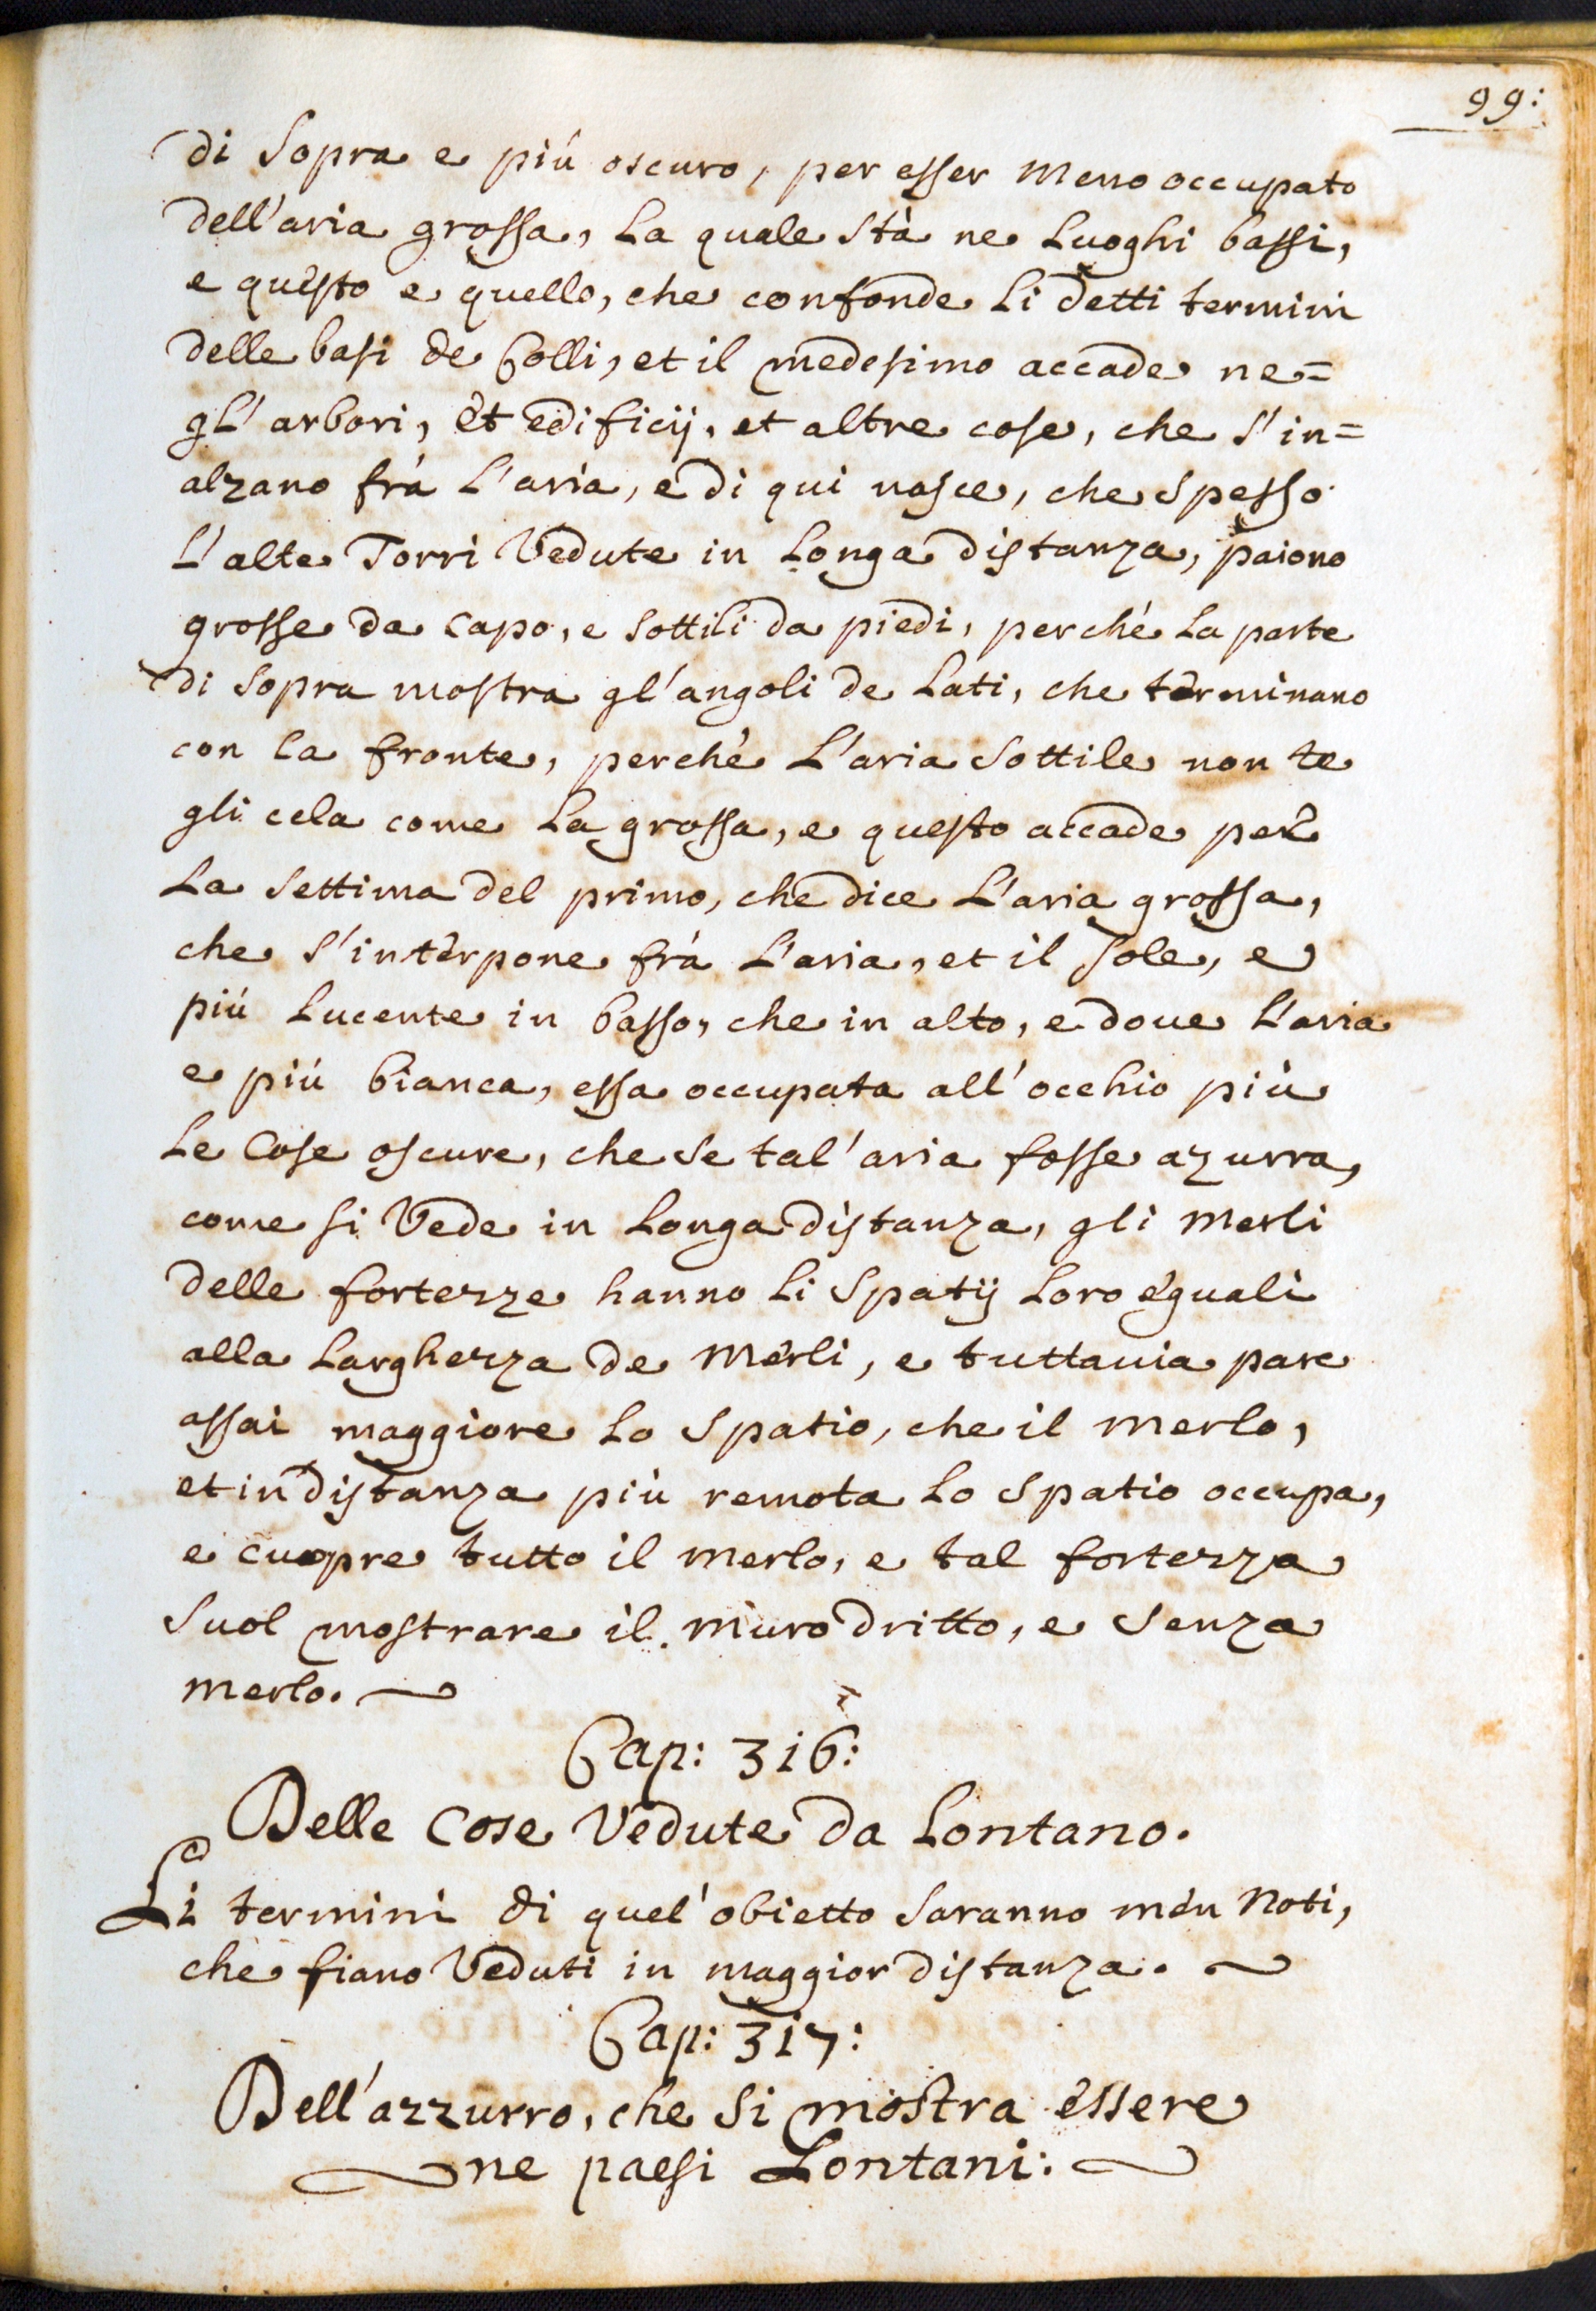 99:
di Sopra e più oscuro, per esser meno occupato
dell'aria grossa, La quale stà ne Luoghi bassi,
e questo e quello, che confonde Li detti termini
delle basi de Colli, et il medesimo accade ne=
gl'arbori, et edificij, et altre cose, che s'in=
alzano frà L'aria, e di qui nasce, che spesso
L'alte Torri Vedute in Longa distanza, paiono
grosse da Capo, e sottili da piedi, perché La parte
di Sopra mostra gl'angoli de Lati, che terminano
con la fronte, perché L'aria Sottile non te
gli cela come La grossa, e questo accade per
La Settima del primo, che dice L'aria grossa,
che s'interpone frà L'aria, et il Sole, e
più Lucente in basso, che in alto, e doue L'aria
e più bianca, essa occupata all'occhio più
Le Cose oscure, che se tal'aria fosse azurra,
come si Vede in Longa distanza, gli merli
delle fortezze hanno Li Spatij Loro eguali
alla Larghezza de Merli, e tuttauia pare
assai maggiore Lo Spatio, che il merlo,
et in distanza più remota Lo Spatio occupa,
e cuopre tutto il merlo, e tal fortezza
Suol mostrare il muro dritto, e Senza
merlo.
Cap: 316:
Delle Cose Vedute da Lontano.
Li termini di quel'obietto Saranno men Noti,
che fiano Veduti in maggior distanza.
Cap: 317:
Dell'azzurro, che Si mostra essere
ne paesi Lontani: